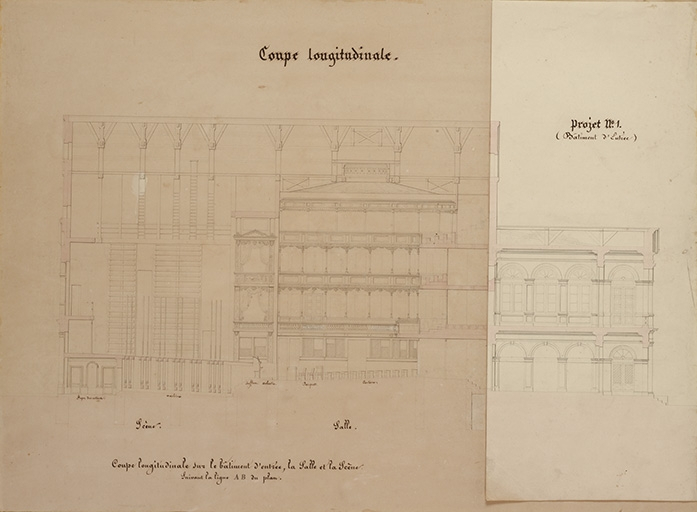 Coupe longitudinale.
Projet N° 1.
(Bâtiment d'Entrée)
Scène.
Salle.
Coupe longitudinale sur le bâtiment d'entrée, la Salle et la Scène
Suivant la ligne A B du plan.